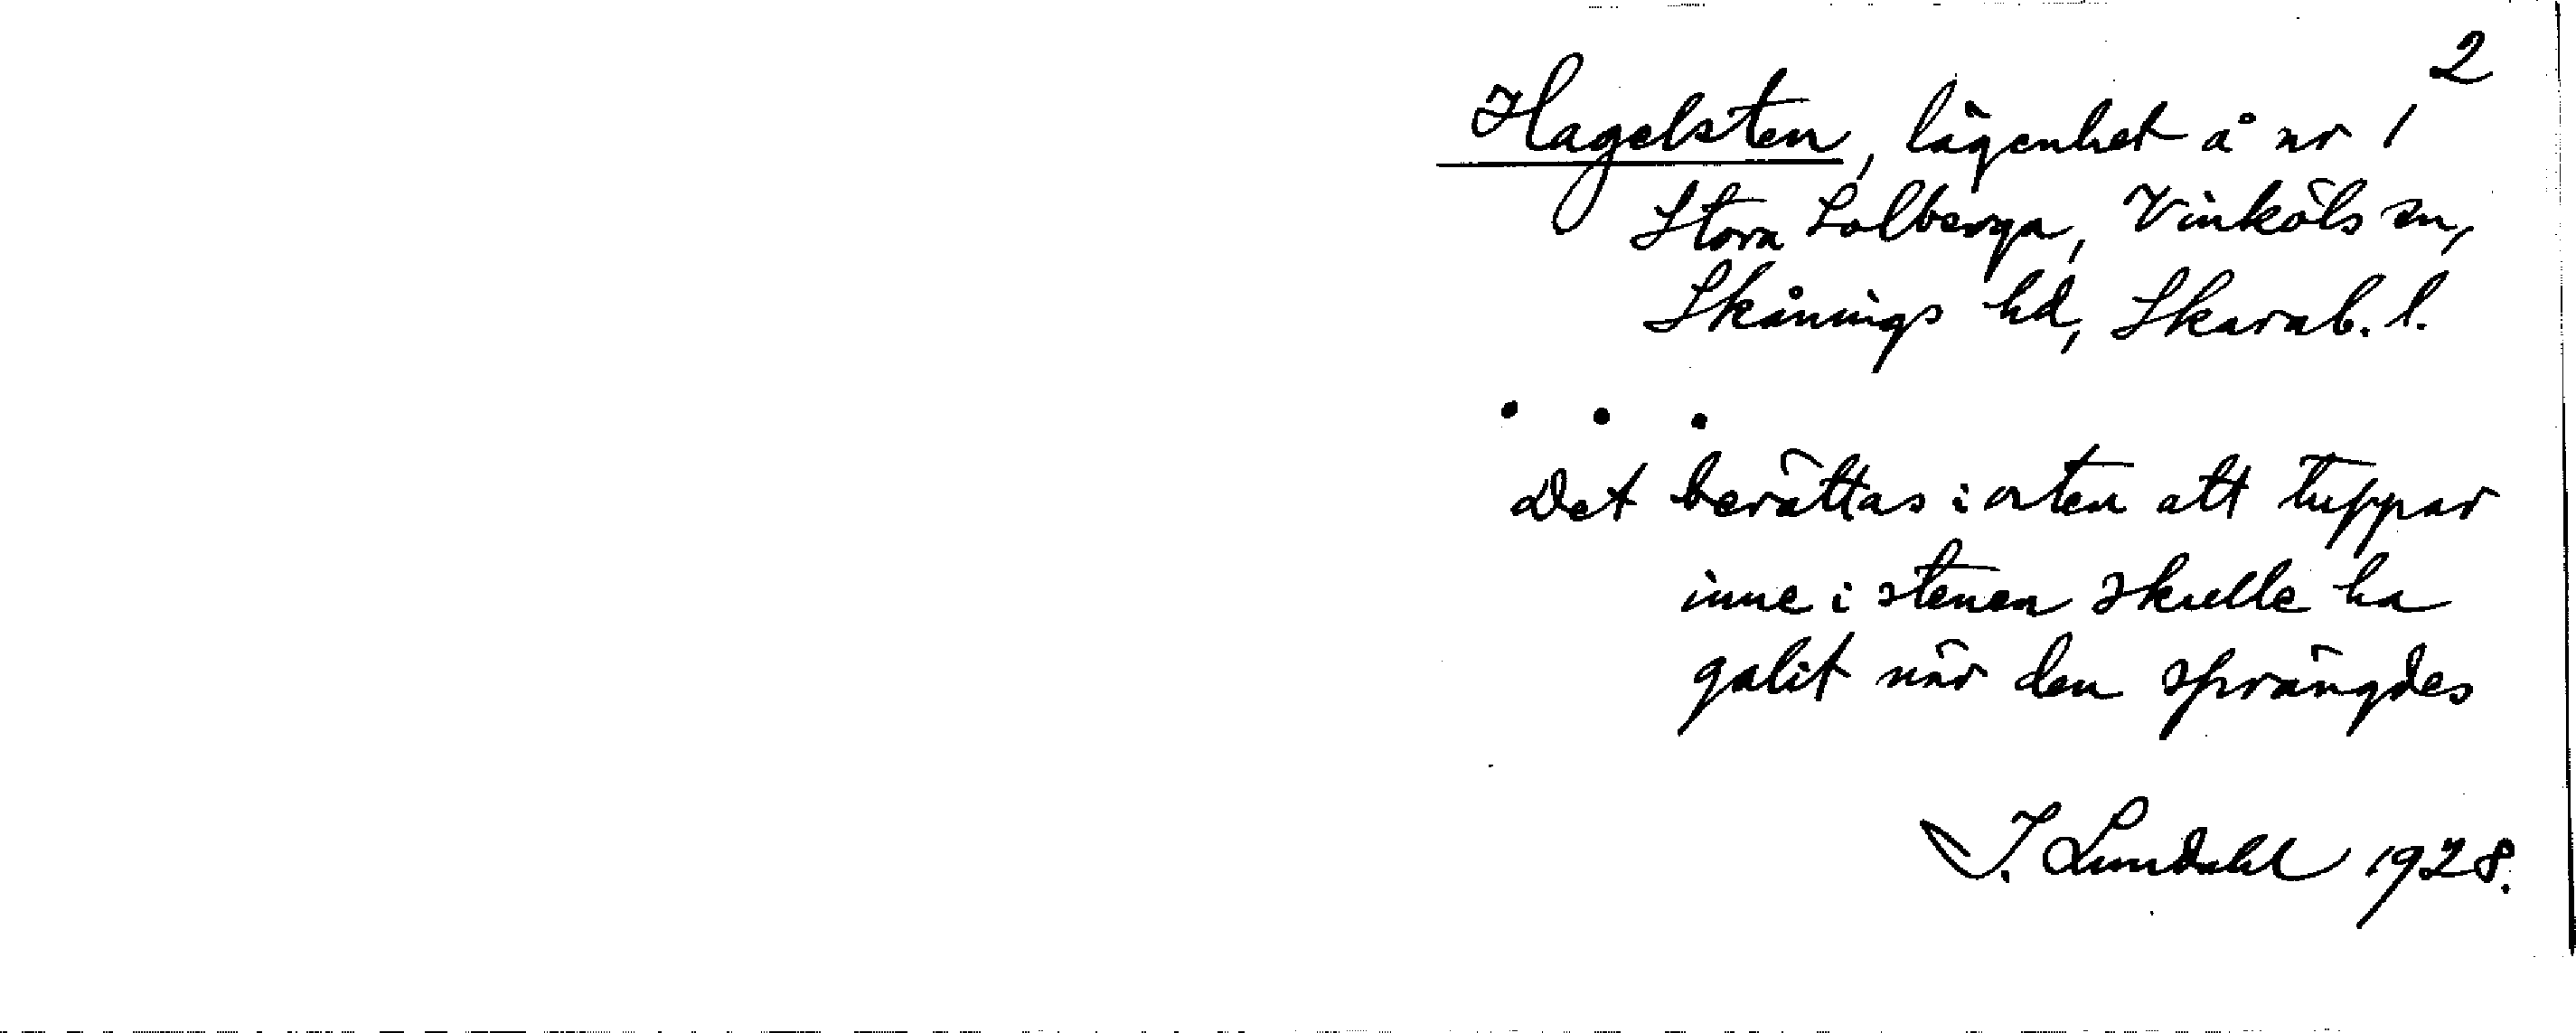 2
Hagelsten, lägenhet å nr 1
Stora Solberga, Vinköls sn,
Skånings hd, Skarab. l.
. . .
Det berättas i orten att tuppar
inne i stenen skulle ha
galit när den sprängdes
I. Lundahl 1928.